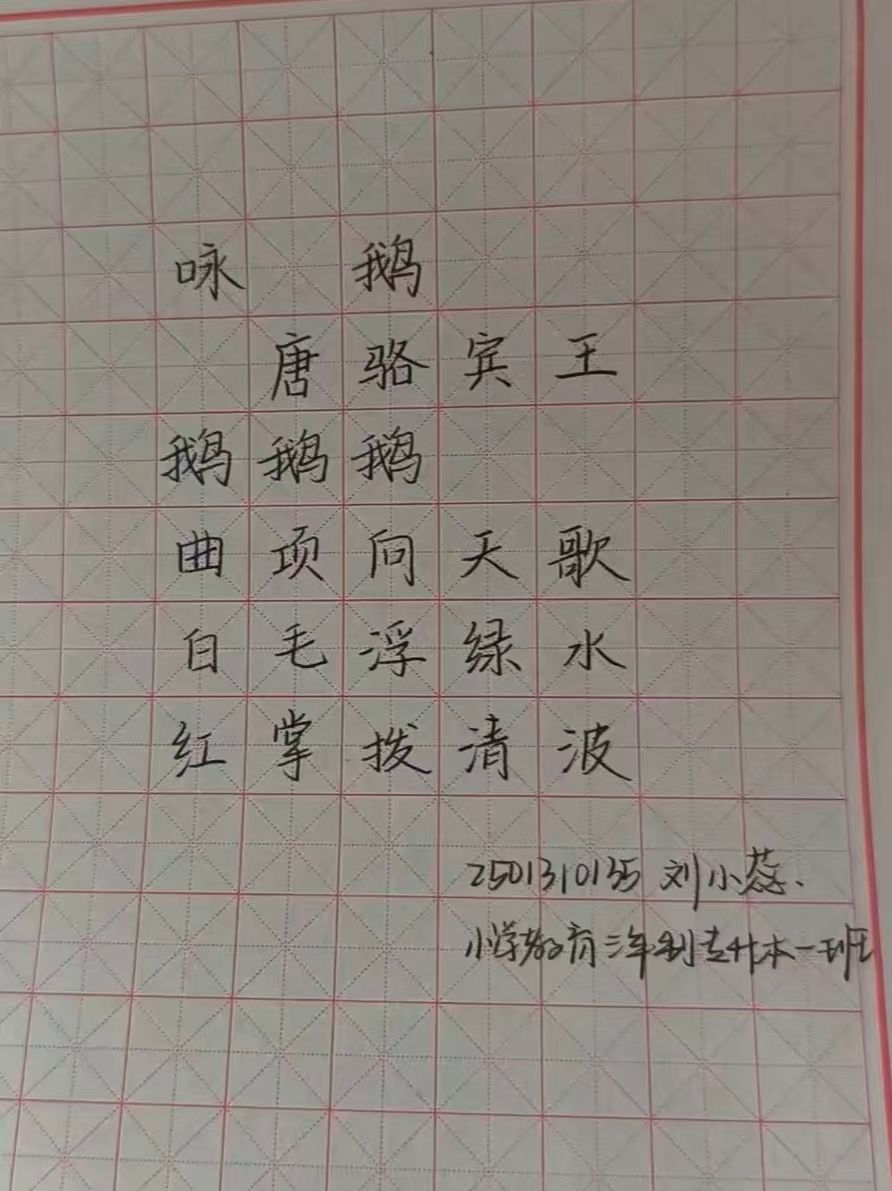 咏 鹅
唐骆宾王
鹅鹅鹅
曲项向天歌
白毛浮绿水
红掌拨清波
2501310135 刘小蕊.
小学教育三年制专升本一班